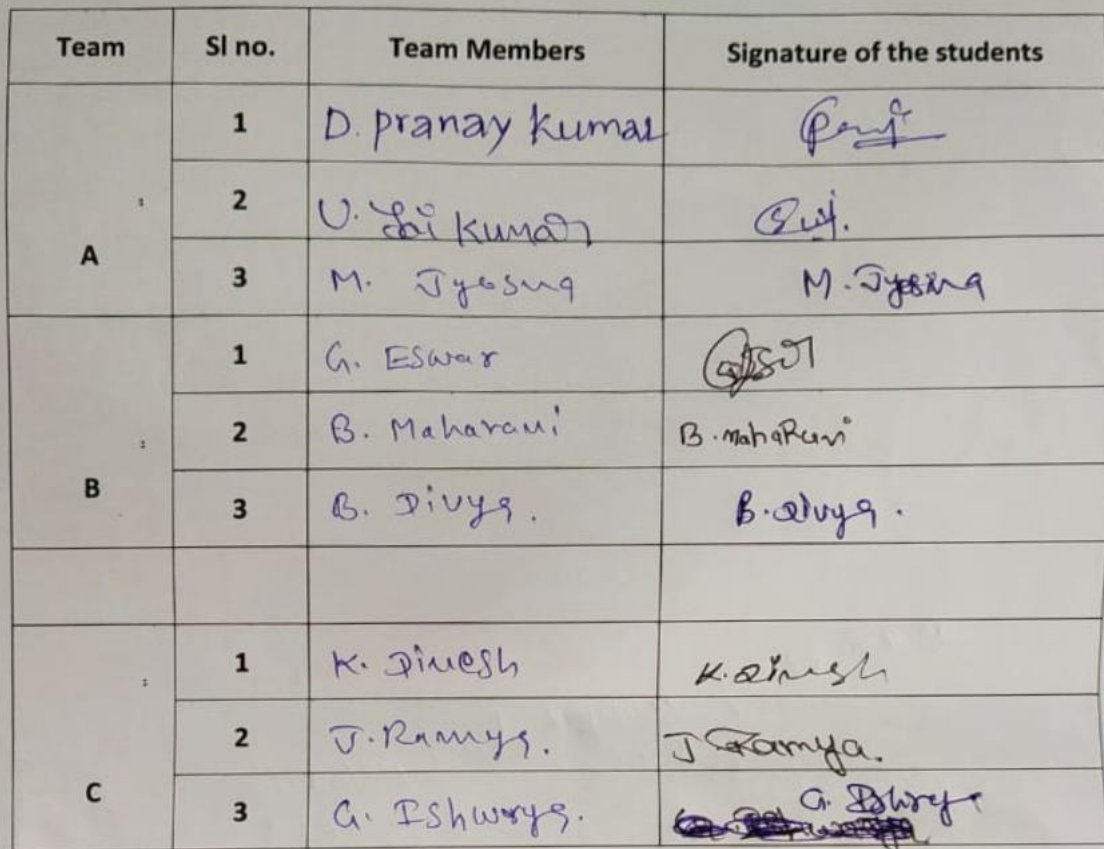 Team Sl no. Team Members Signature of the students
1 D. Pranay Kumar
2 U. Sai Kumar
A
3 M. Jyosna M. Jyosna
1 G. Eswar
2 B. Maharani B. MahaRani
B
3 B. Divya. B. Divya.
1 K. Dinesh K. Dinesh
2 J. Ramya. J. Ramya.
C
3 G. Ishwarya. G.